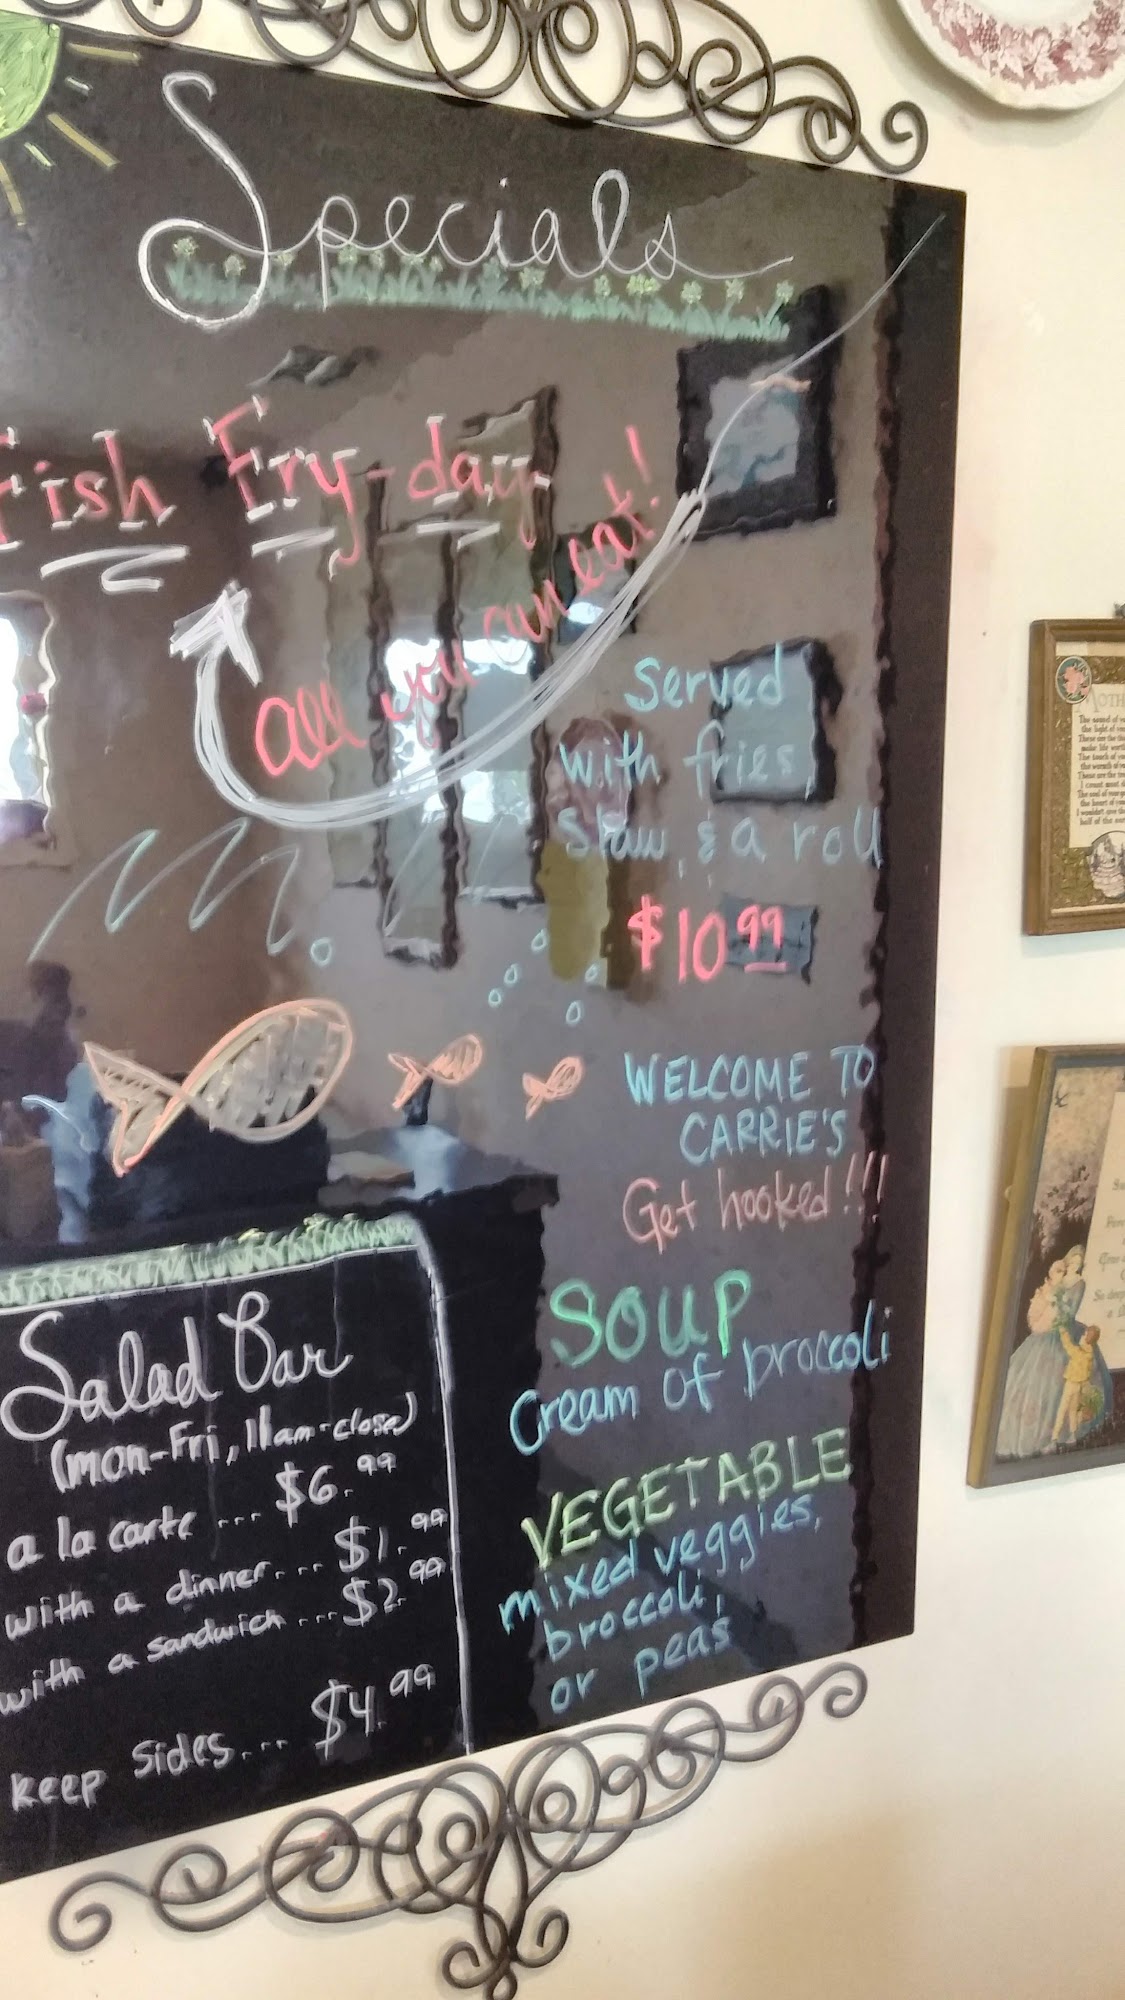 Specials
Fish Fry-day
all you can eat!
Served
with fries,
Slaw, & a roll
$10.99
WELCOME TO
CARRIE'S
Get hooked!!!
Salad Bar
(mon-Fri, 11am-close)
a la carte ... $6.99
with a dinner... $1.99
with a sandwich ... $2.99
keep sides... $4.99
SOUP
Cream of broccoli
VEGETABLE
mixed veggies,
broccoli,
or peas